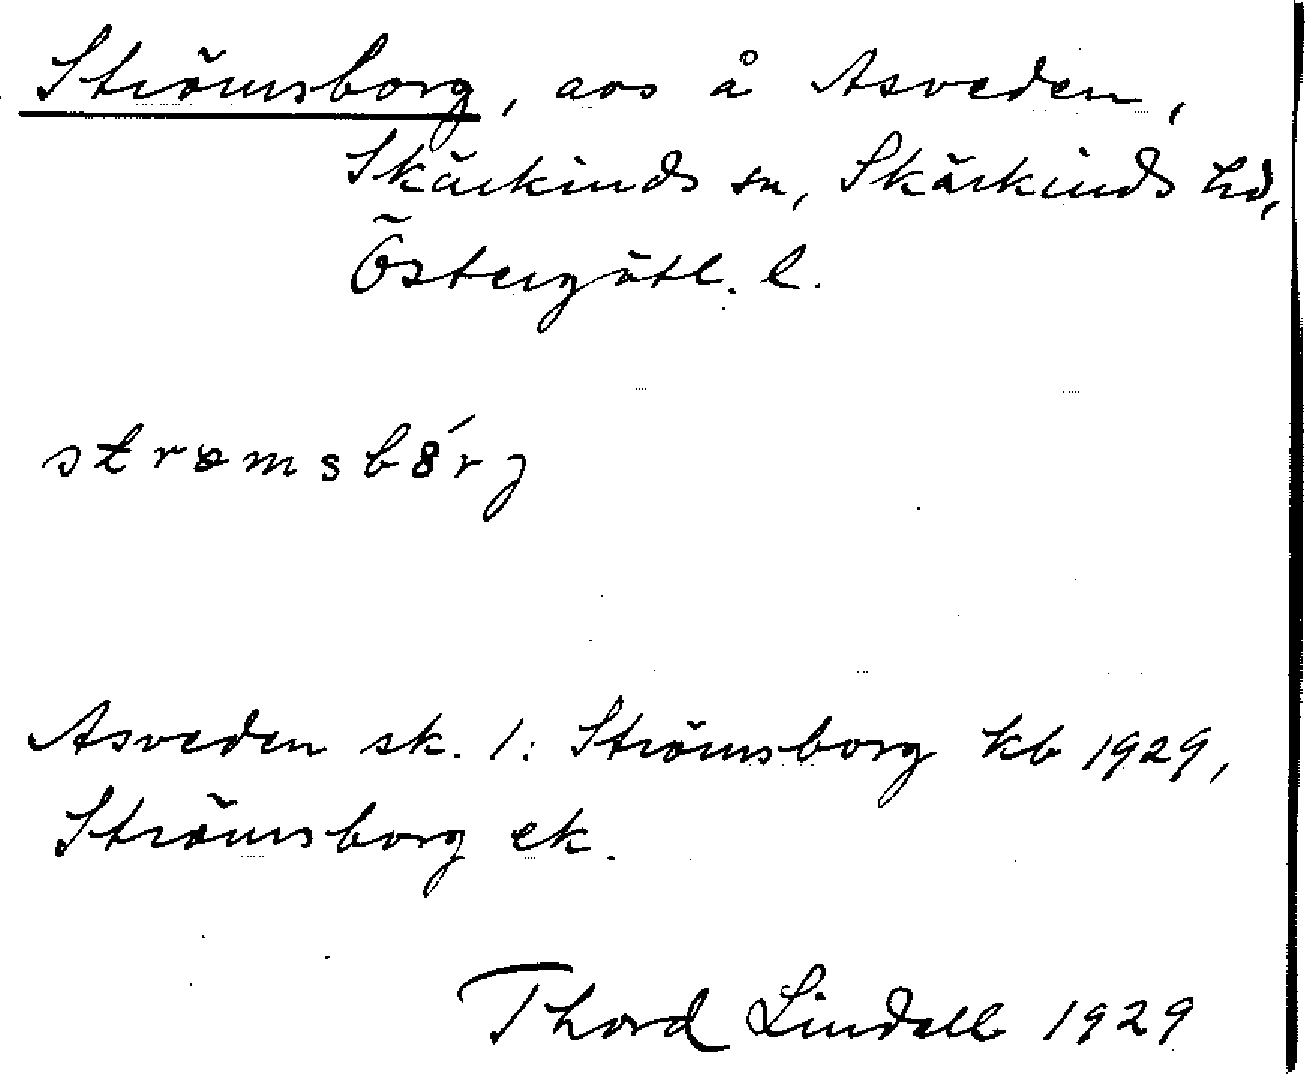 Strömsborg, aos å Asveden,
Skärkinds sn, Skärkinds hd,
Östergötl. l.
strømsbórj
Asveden sk. 1: Strömsborg kb 1929,
Strömsborg ek.
Thord Lindell 1929